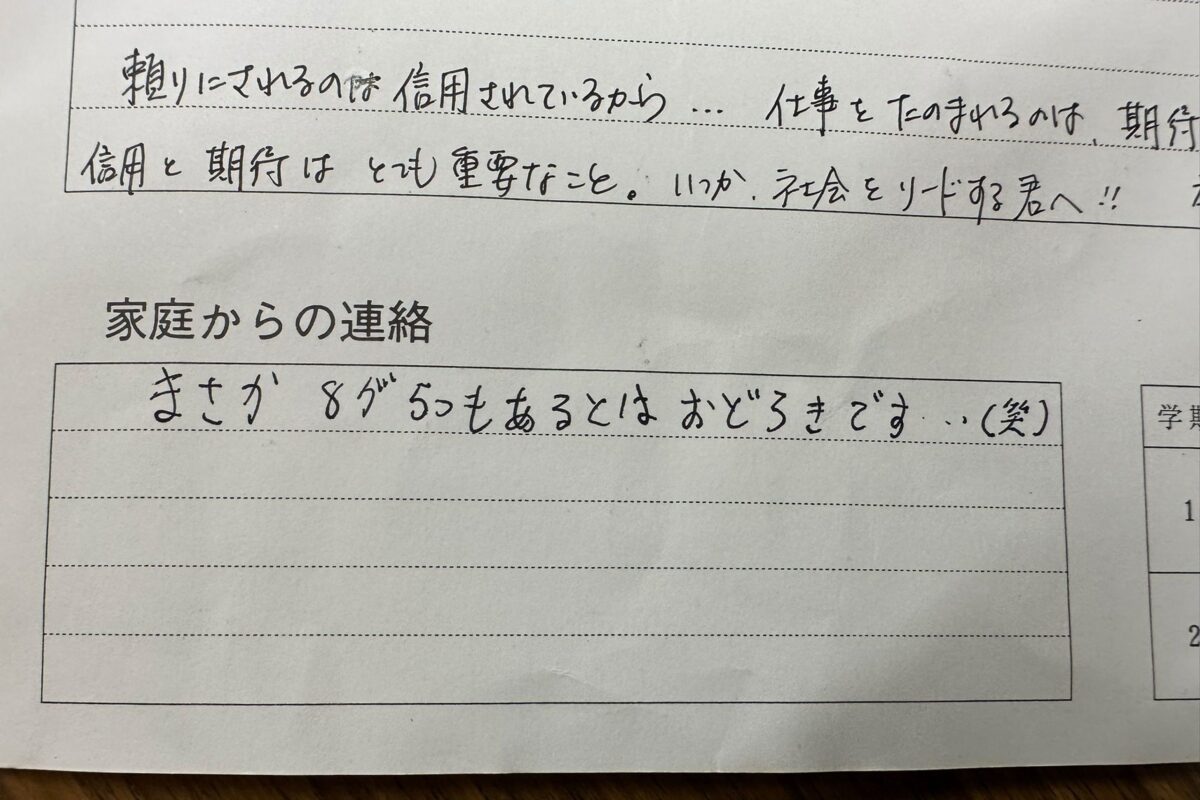 頼りにされるのは信用されているから… 仕事をたのまれるのは、期待
信用と期待はとても重要なこと。いつか、社会をリードする君へ!!
家庭からの連絡
まさか 8が5つもあるとは おどろきです…(笑)
学期
1
2